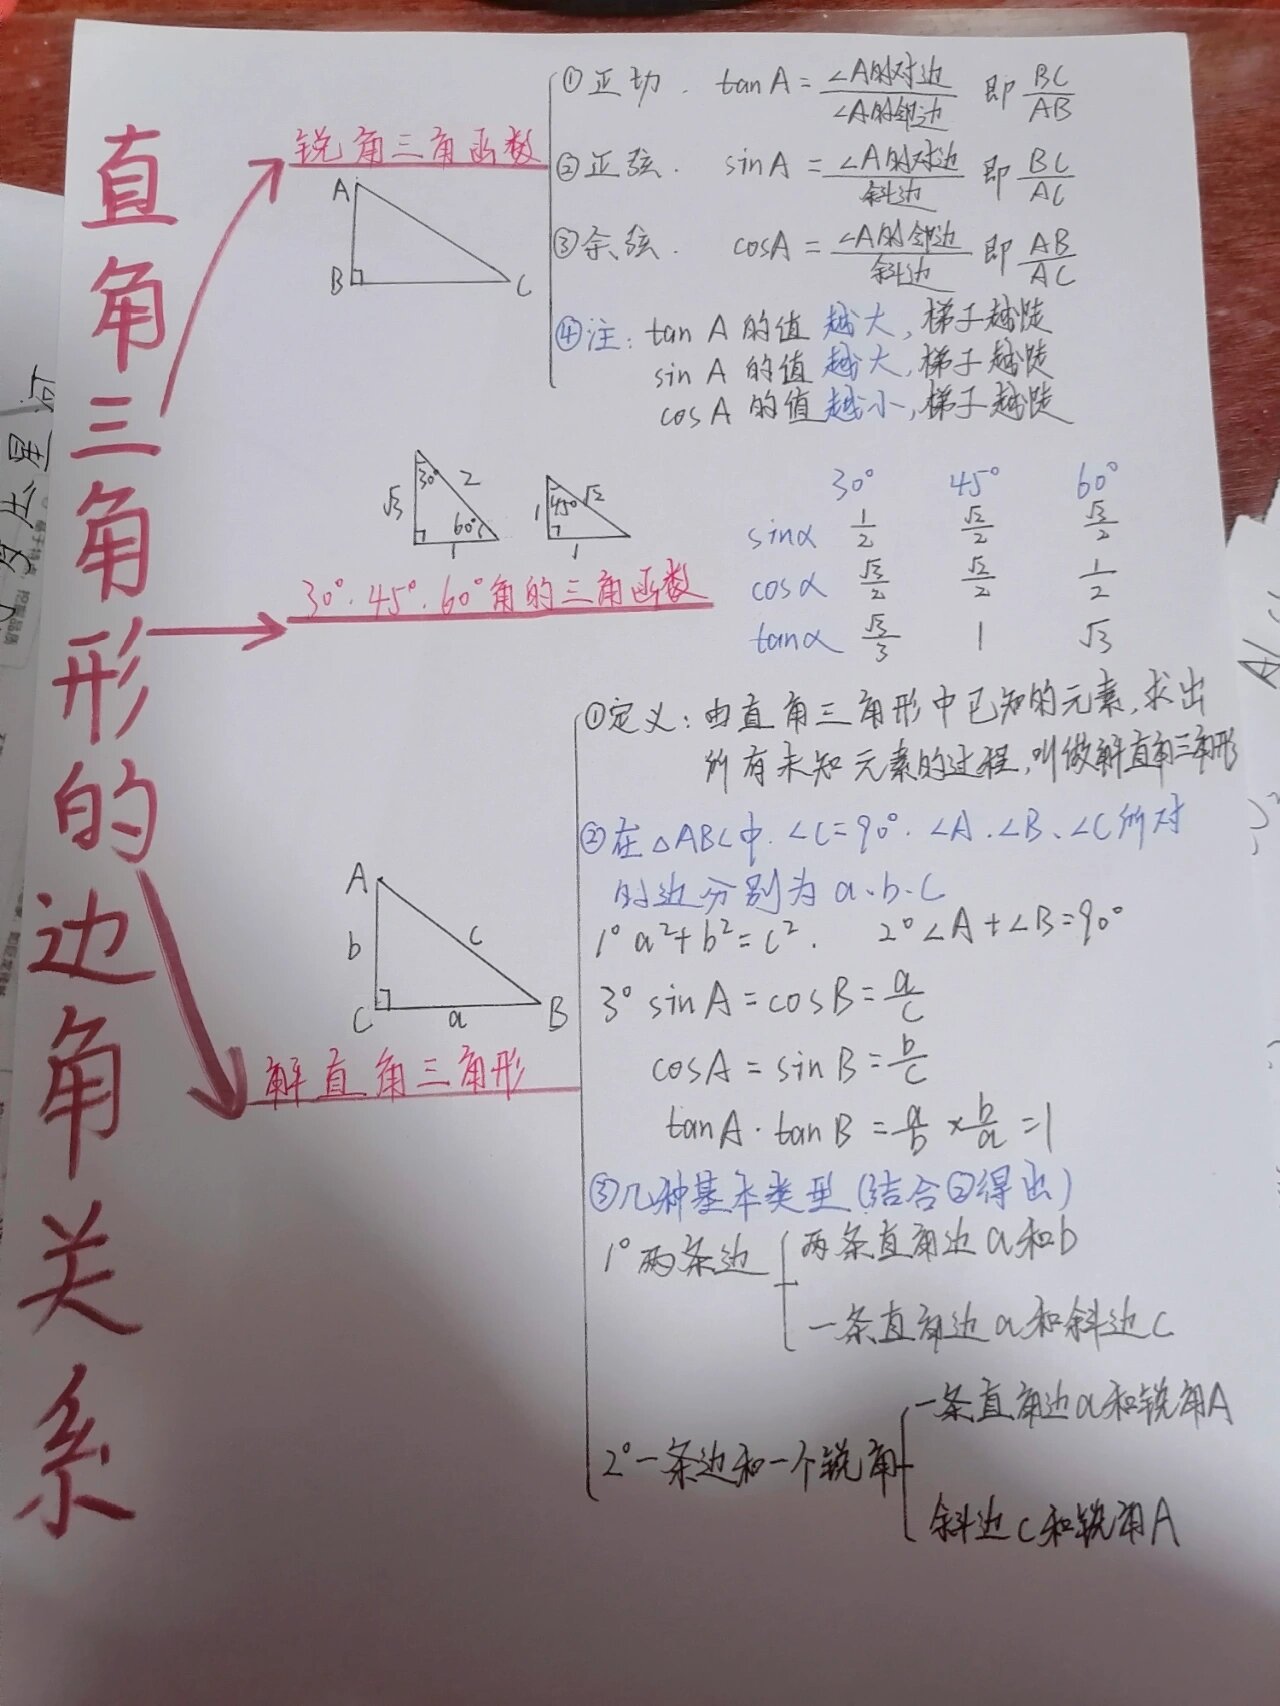 直角三角形的边角关系
锐角三角函数
A
B
C
①正切. tanA = ∠A的对边/∠A的邻边 即 BC/AB
②正弦. sinA = ∠A的对边/斜边 即 BC/AC
③余弦. cosA = ∠A的邻边/斜边 即 AB/AC
④注: tanA的值越大,梯子越陡
sinA的值越大,梯子越陡
cosA的值越小,梯子越陡
30° 2 √3 60° 1
45° √2 1 1
30°.45°.60°角的三角函数
30° 45° 60°
sinα 1/2 √2/2 √3/2
cosα √3/2 √2/2 1/2
tanα √3/3 1 √3
解直角三角形
A
b c
C a B
①定义:由直角三角形中已知的元素,求出
所有未知元素的过程,叫做解直角三角形
②在△ABC中.∠C=90°.∠A.∠B、∠C所对
的边分别为a.b.c
1° a²+b²=c². 2°∠A+∠B=90°
3° sinA=cosB=a/c
cosA=sinB=b/c
tanA·tanB=a/b×b/a=1
③几种基本类型(结合②得出)
1°两条边
两条直角边a和b
一条直角边a和斜边c
2°一条边和一个锐角
一条直角边a和锐角A
斜边c和锐角A